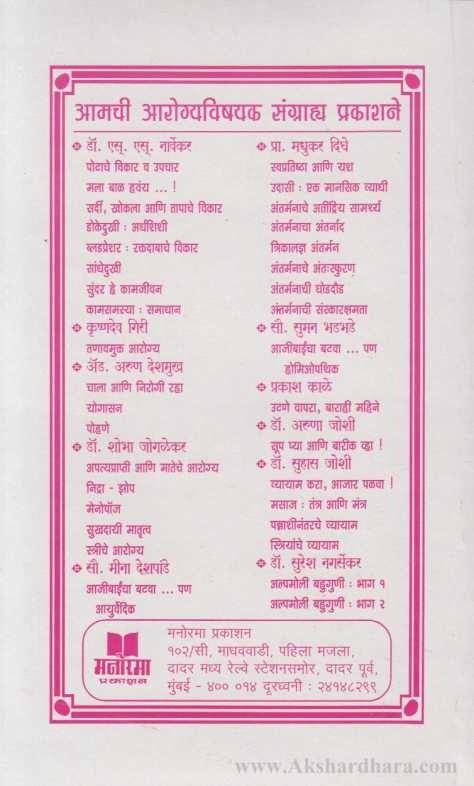 आमची आरोग्यविषयक संग्राह्य प्रकाशने
❖ डॉ. एस्. एस्. नार्वेकर
पोटाचे विकार व उपचार
मला बाळ हवंय ... !
सर्दी, खोकला आणि तापाचे विकार
डोकेदुखी : अर्धशिशी
ब्लडप्रेशर : रक्तदाबाचे विकार
सांधेदुखी
सुंदर हे कामजीवन
कामसमस्या : समाधान
❖ कृष्णदेव गिरी
तणावमुक्त आरोग्य
❖ ॲड. अरुण देशमुख
चाला आणि निरोगी रहा
योगासन
पोहणे
❖ डॉ. शोभा जोगळेकर
अपत्यप्राप्ती आणि मातेचे आरोग्य
निद्रा - झोप
मेनोपॉज
सुखदायी मातृत्व
स्त्रीचे आरोग्य
❖ सौ. मीना देशपांडे
आजीबाईंचा बटवा ... पण
आयुर्वेदिक
❖ प्रा. मधुकर दिघे
स्वप्रतिष्ठा आणि यश
उदासी : एक मानसिक व्याधी
अंतर्मनाचे अतींद्रिय सामर्थ्य
अंतर्मनाचा अंतर्नाद
त्रिकालज्ञ अंतर्मन
अंतर्मनाचे अंतःस्फुरण
अंतर्मनाची घोडदौड
अंतर्मनाची संस्कारक्षमता
❖ सौ. सुमन भडभडे
आजीबाईंचा बटवा ... पण
होमिओपथिक
❖ प्रकाश काळे
उटणे वापरा, बाराही महिने
❖ डॉ. अरुणा जोशी
सूप घ्या आणि बारीक व्हा !
❖ डॉ. सुहास जोशी
व्यायाम करा, आजार पळवा !
मसाज : तंत्र आणि मंत्र
पन्नाशीनंतरचे व्यायाम
स्त्रियांचे व्यायाम
❖ डॉ. सुरेश नगर्सेकर
अल्पमोली बहुगुणी : भाग १
अल्पमोली बहुगुणी : भाग २
मनोरमा
प्रकाशन
मनोरमा प्रकाशन
१०२/सी, माधववाडी, पहिला मजला,
दादर मध्य रेल्वे स्टेशनसमोर, दादर पूर्व,
मुंबई - ४०० ०१४ दूरध्वनी : २४१४८२९९
www.Akshardhara.com